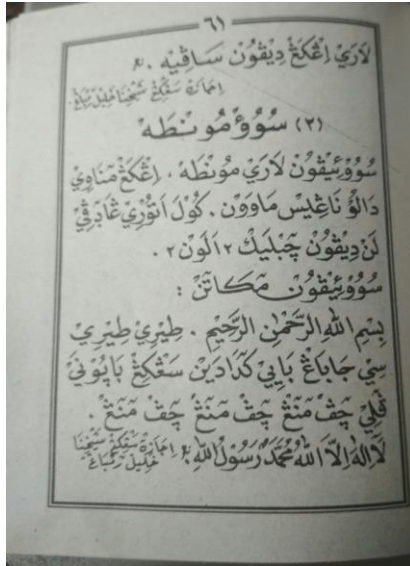 ٦١
لاَرَيْ اِڠْكَڠْ دِيْڤُوْنْ سَاڤِيْه .
اِجَازَةْ سَڠْكِڠْ شَيْخِنَا خَلِيْل رَمْبَاڠْ.
(٢) سُوْوُؤْ مُوْنْطَهْ
سُوْوُؤْئِيْڤُوْنْ لاَرَيْ مُوْنْطَهْ . اِڠْكَڠْ مَناَوِيْ
دَالُوْ نَاڠِيْس مَاوَوْنْ . كُوْلَ اَتُوْرِيْ
لَنْ دِيْڤُوْنْ چَبْلَيْكْ ٢ اَلَوْنْ ٢ .
سُوْوُؤْئِيْڤُوْنْ مَكَاتَنْ :
بِسْمِ اللهِ الرَّحْمٰنِ الرَّحِيْمِ . طِيْرِيْ طِيْرِيْ
سِيْ جَابَاڠْ بَايِيْ كَدَادَيْنْ سَڠْكِڠْ بَاپُوْنَيْ
ڤَلِيْ چَڤْ مَنَڠْ چَڤْ مَنَڠْ چَڤْ مَنَڠْ .
لَا اِلٰهَ اِلاَّ اللهُ مُحَمَّدٌ رَسُوْلُ اللهِ .
اِجَازَةْ سَڠْكِڠْ شَيْخِنَا
خَلِيْل رَمْبَاڠْ